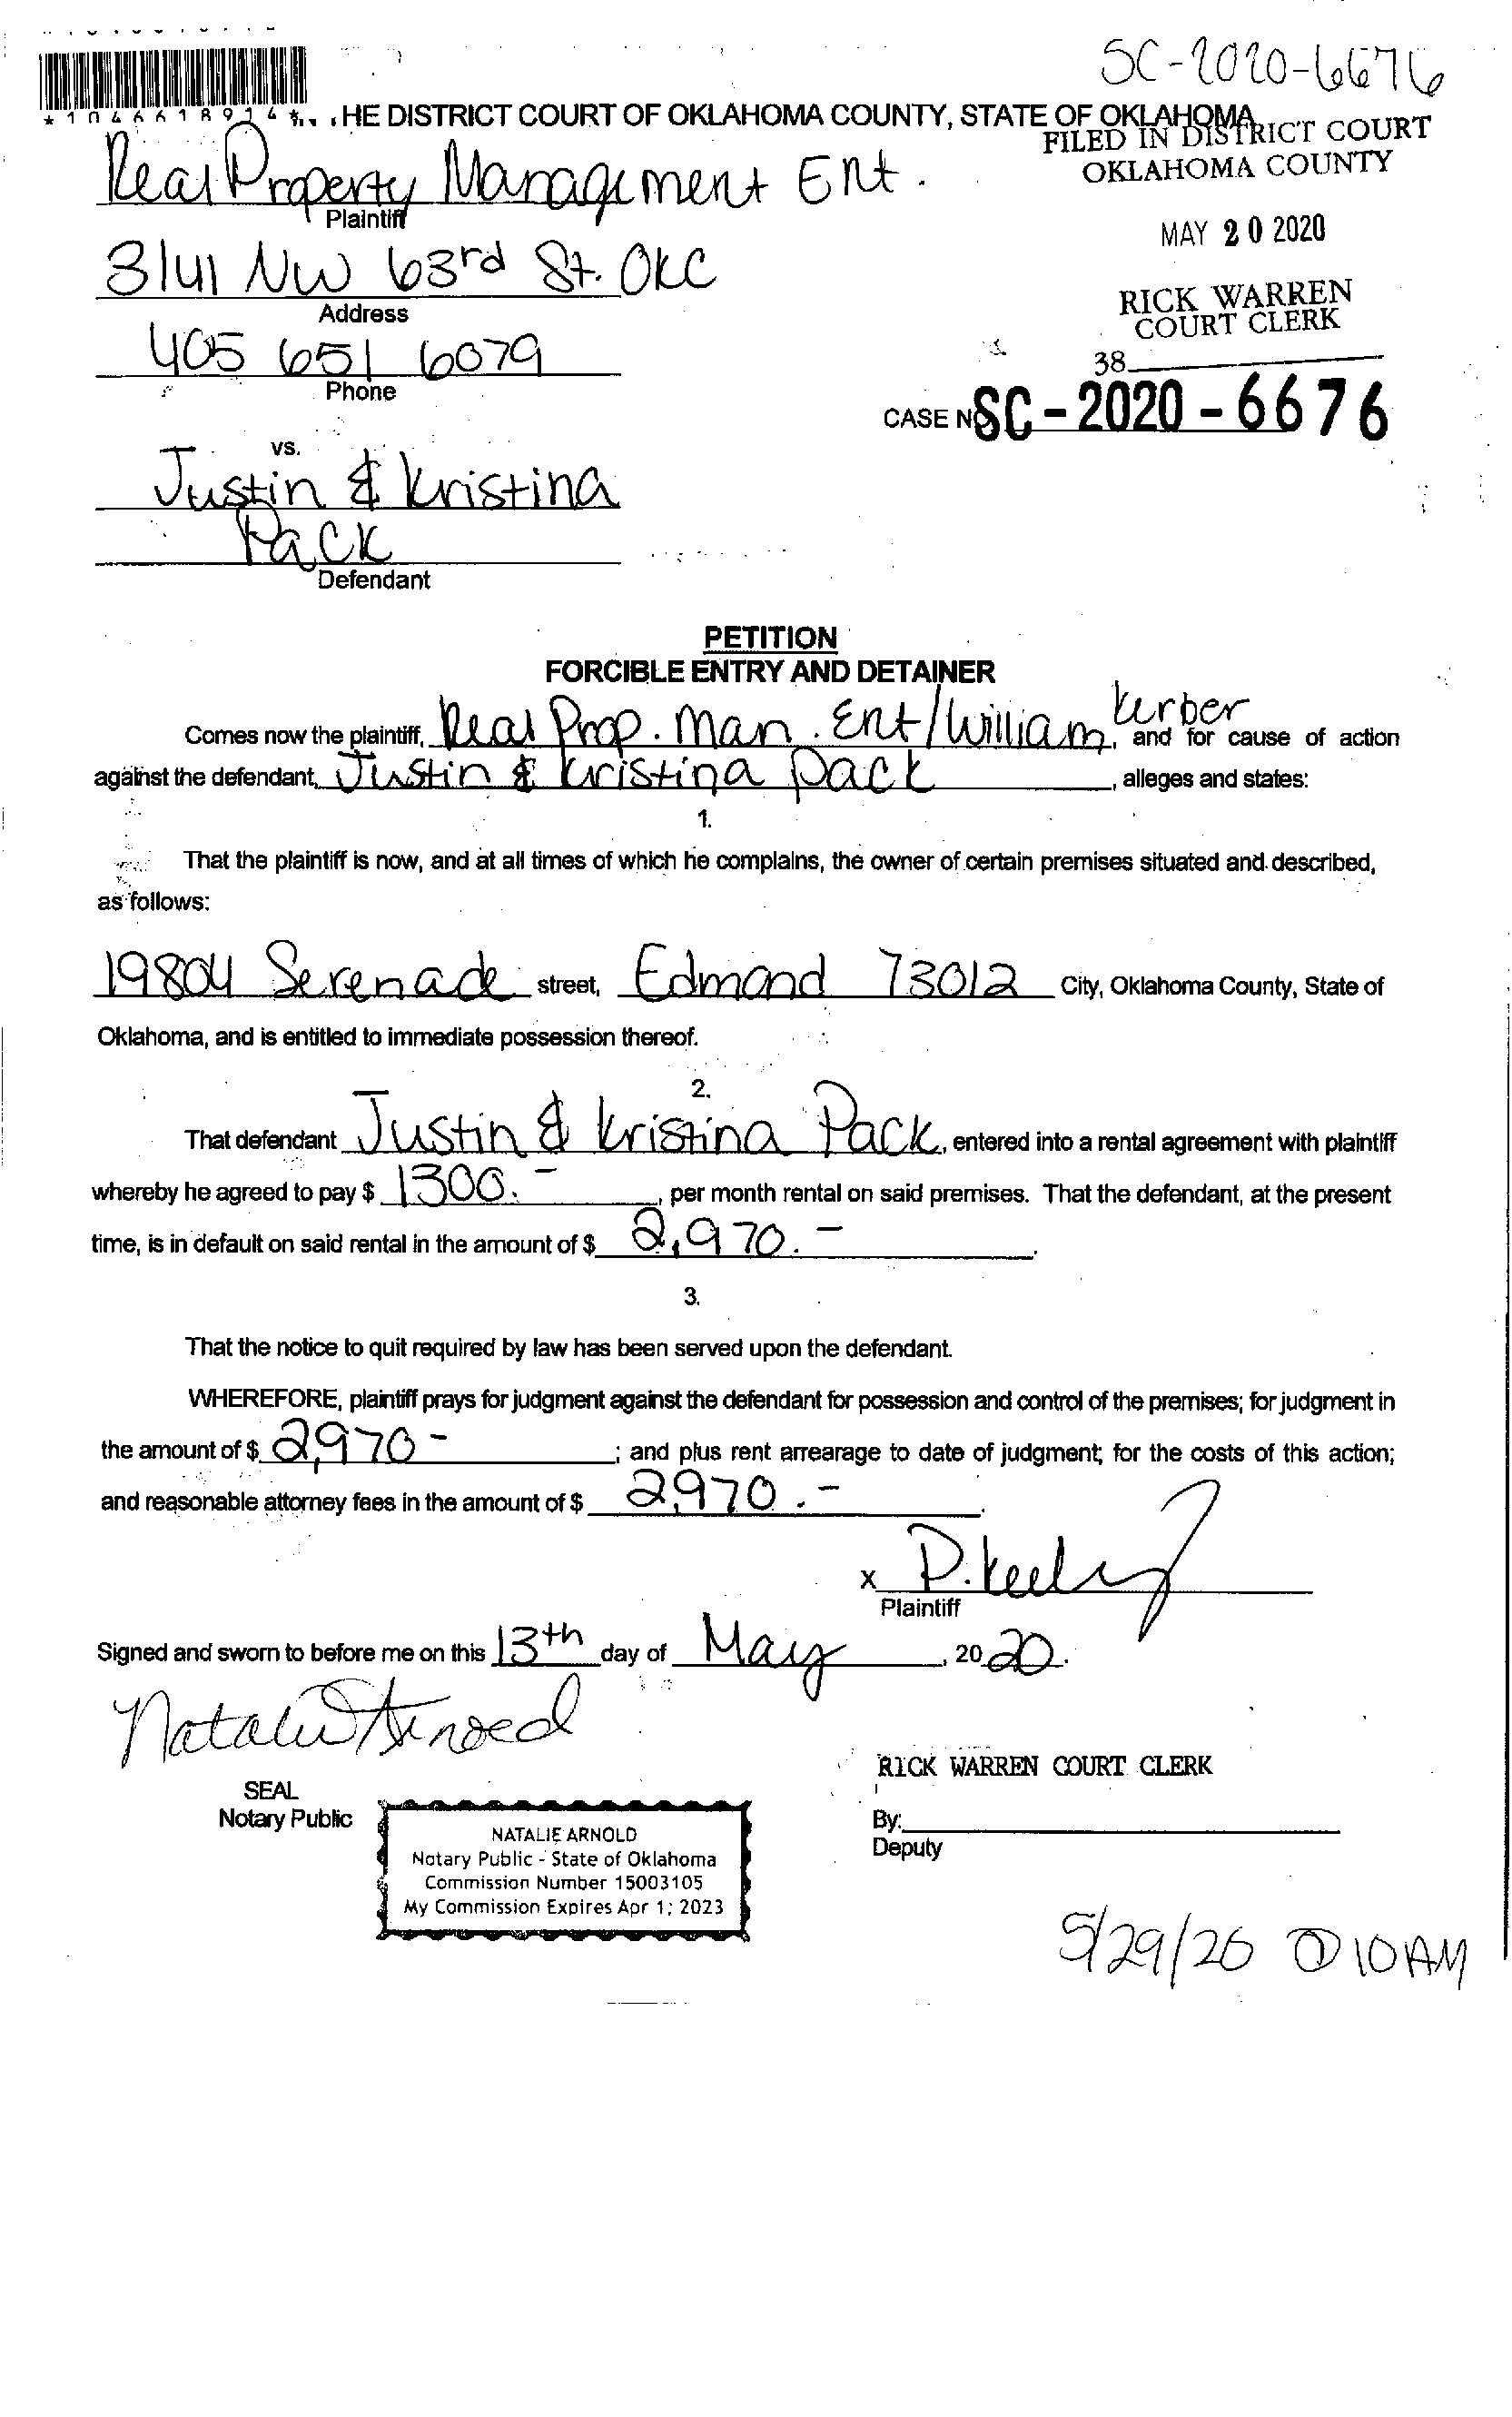 SC-2020-6676
HE DISTRICT COURT OF OKLAHOMA COUNTY, STATE OF OKLAHOMA
FILED IN DISTRICT COURT
OKLAHOMA COUNTY
Real Property Management Ent.
Plaintiff
MAY 20 2020
3141 NW 63rd St. OKC
Address
RICK WARREN
COURT CLERK
405 651 6079
Phone
38
CASE NO SC-2020-6676
vs.
Justin & Kristina
Pack
Defendant
PETITION
FORCIBLE ENTRY AND DETAINER
Comes now the plaintiff, Real Prop. Man. Ent/William Kerber, and for cause of action
against the defendant, Justin & Kristina Pack, alleges and states:
1.
That the plaintiff is now, and at all times of which he complains, the owner of certain premises situated and described,
as follows:
19804 Serenade street, Edmond 73012 City, Oklahoma County, State of
Oklahoma, and is entitled to immediate possession thereof.
2.
That defendant Justin & Kristina Pack, entered into a rental agreement with plaintiff
whereby he agreed to pay $ 1300.-, per month rental on said premises. That the defendant, at the present
time, is in default on said rental in the amount of $ 2,970.-.
3.
That the notice to quit required by law has been served upon the defendant.
WHEREFORE, plaintiff prays for judgment against the defendant for possession and control of the premises; for judgment in
the amount of $ 2,970-; and plus rent arrearage to date of judgment; for the costs of this action;
and reasonable attorney fees in the amount of $ 2,970.-.
x D. Keely
Plaintiff
Signed and sworn to before me on this 13th day of May, 2020.
Natalie Arnold
RICK WARREN COURT CLERK
SEAL
Notary Public
By:
Deputy
NATALIE ARNOLD
Notary Public - State of Oklahoma
Commission Number 15003105
My Commission Expires Apr 1, 2023
5/29/20 @ 10AM